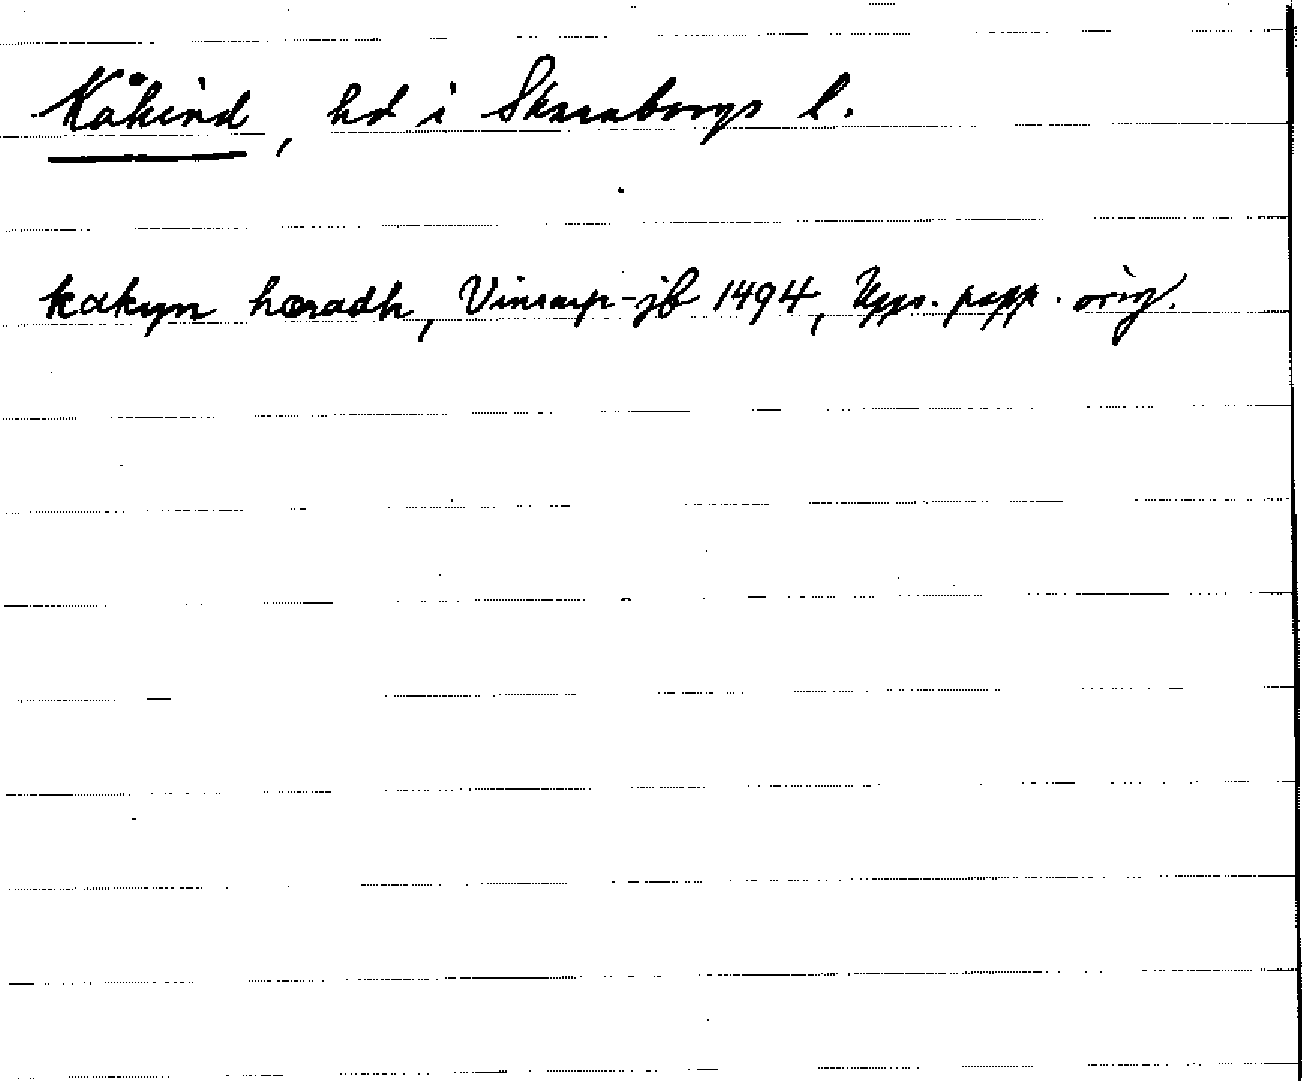 Kåkind, hd i Skaraborgs l.
kakyn hæradh, Vinsarp-jb 1494, Upps. papp. orig.